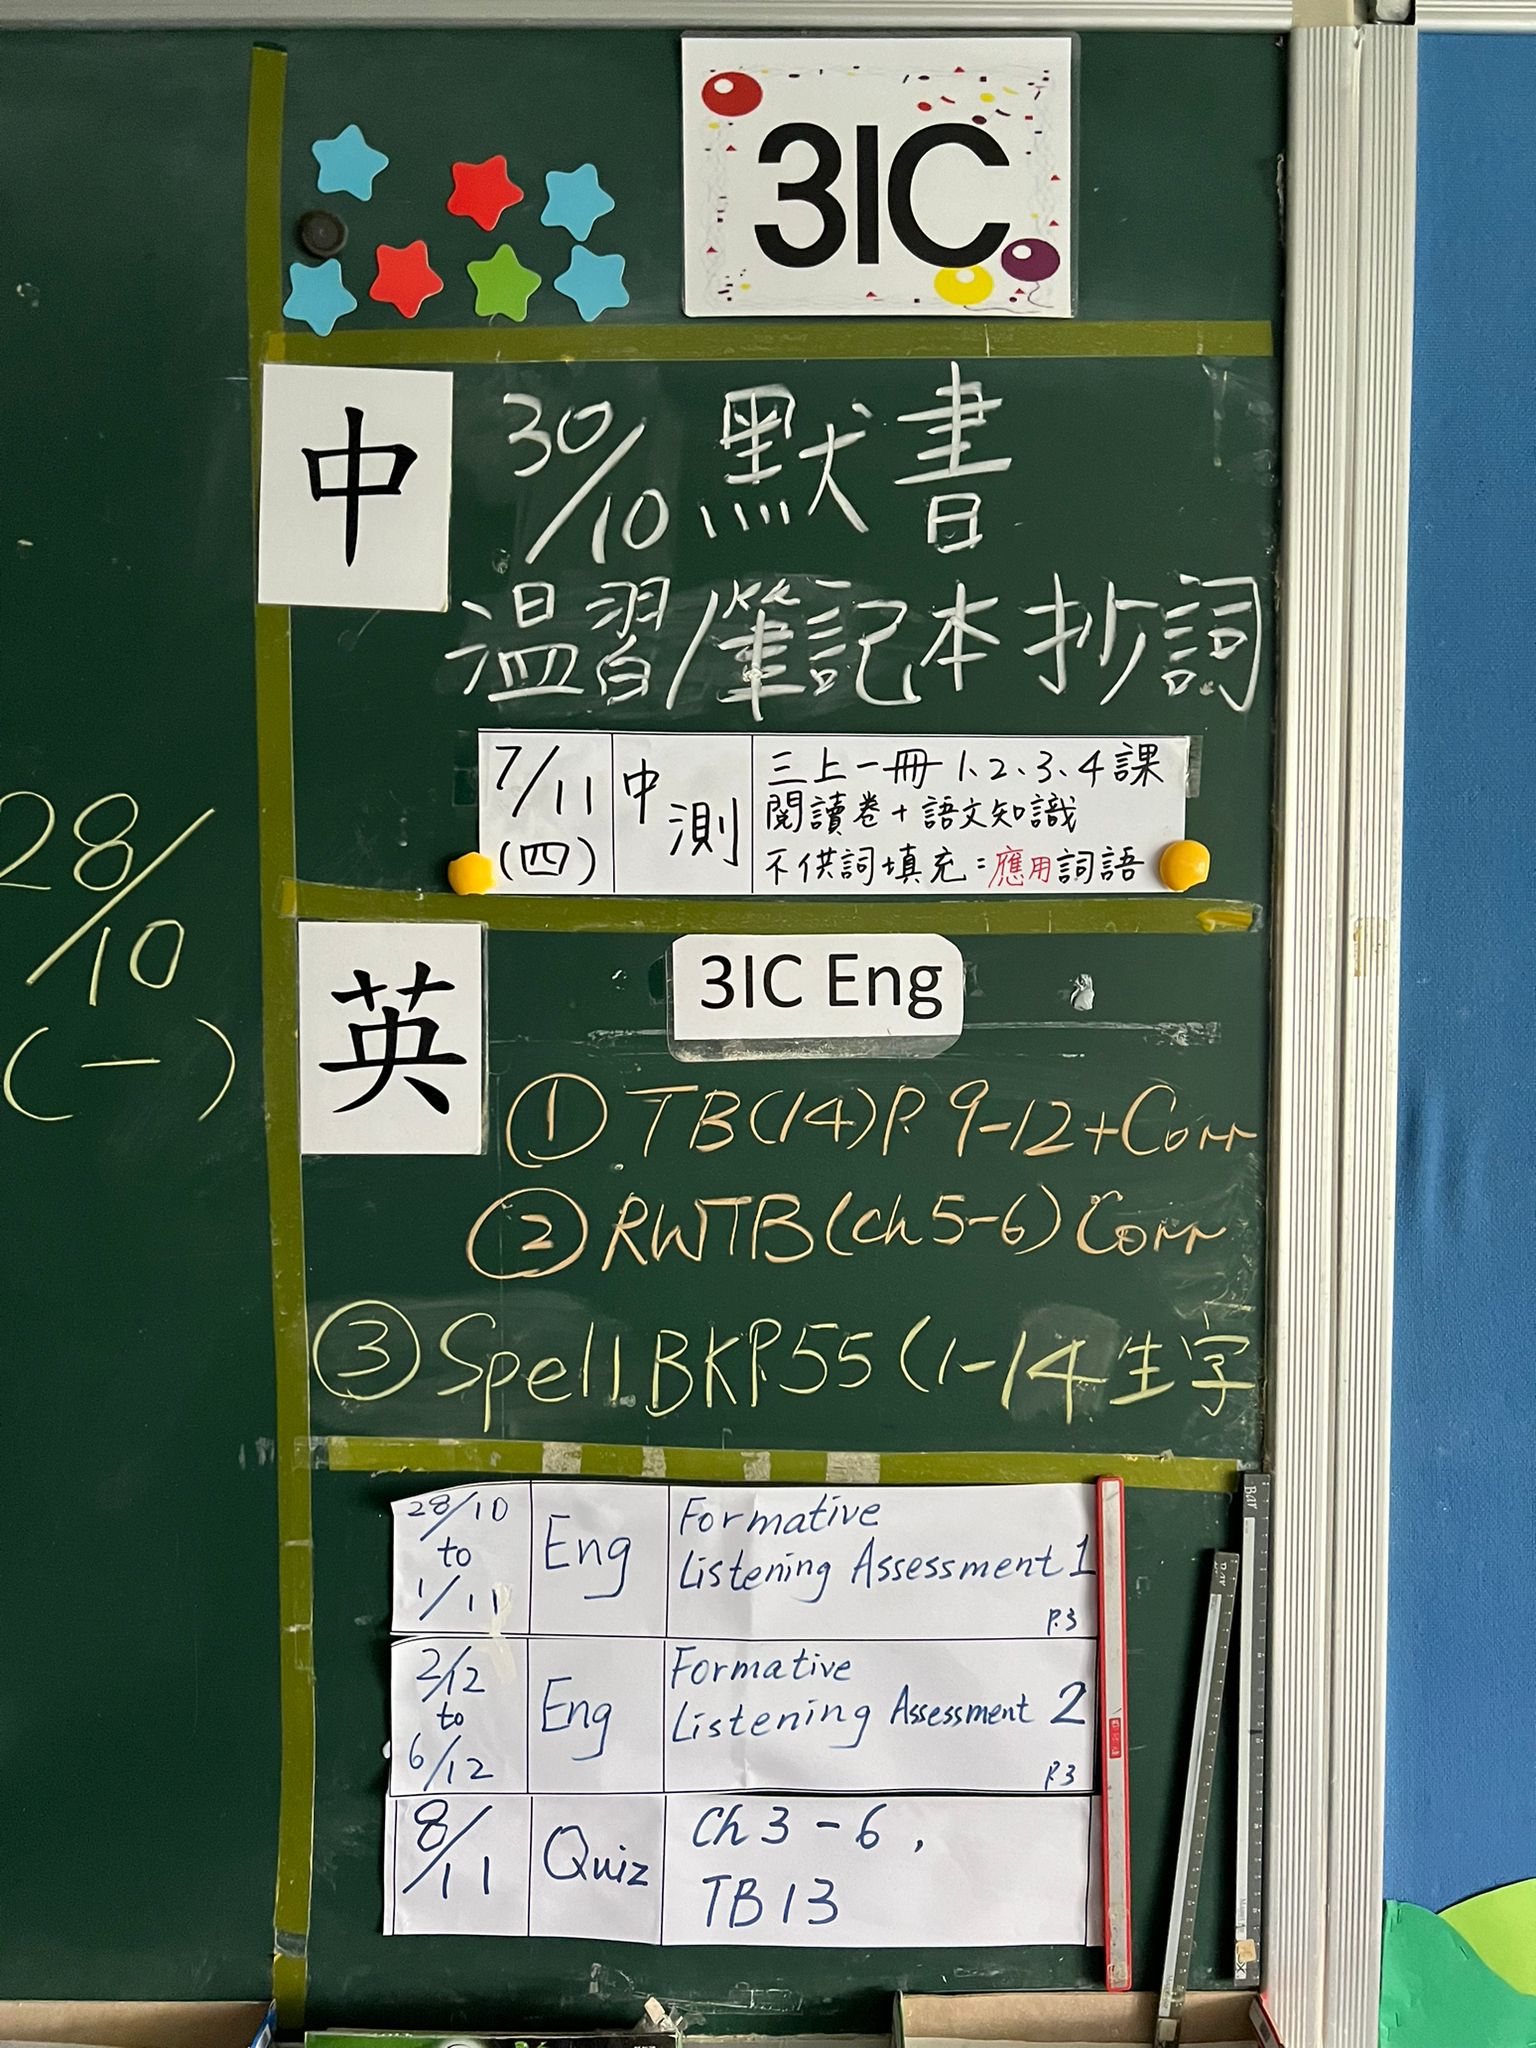 3IC
中
30/10 默書
溫習/筆記本抄詞
7/11
(四)
中測
三上一冊 1、2、3、4課
閱讀卷+語文知識
不供詞填充:應用詞語
28/10
(一)
英
3IC Eng
① TB(14)P.9-12+Corr
② RWTB(Ch5-6) Corr
③ Spell BK P.55 (1-14生字
28/10
to
1/11
Eng
Formative
Listening Assessment 1
P.3
2/12
to
6/12
Eng
Formative
Listening Assessment 2
P.3
8/11
Quiz
Ch 3-6,
TB 13